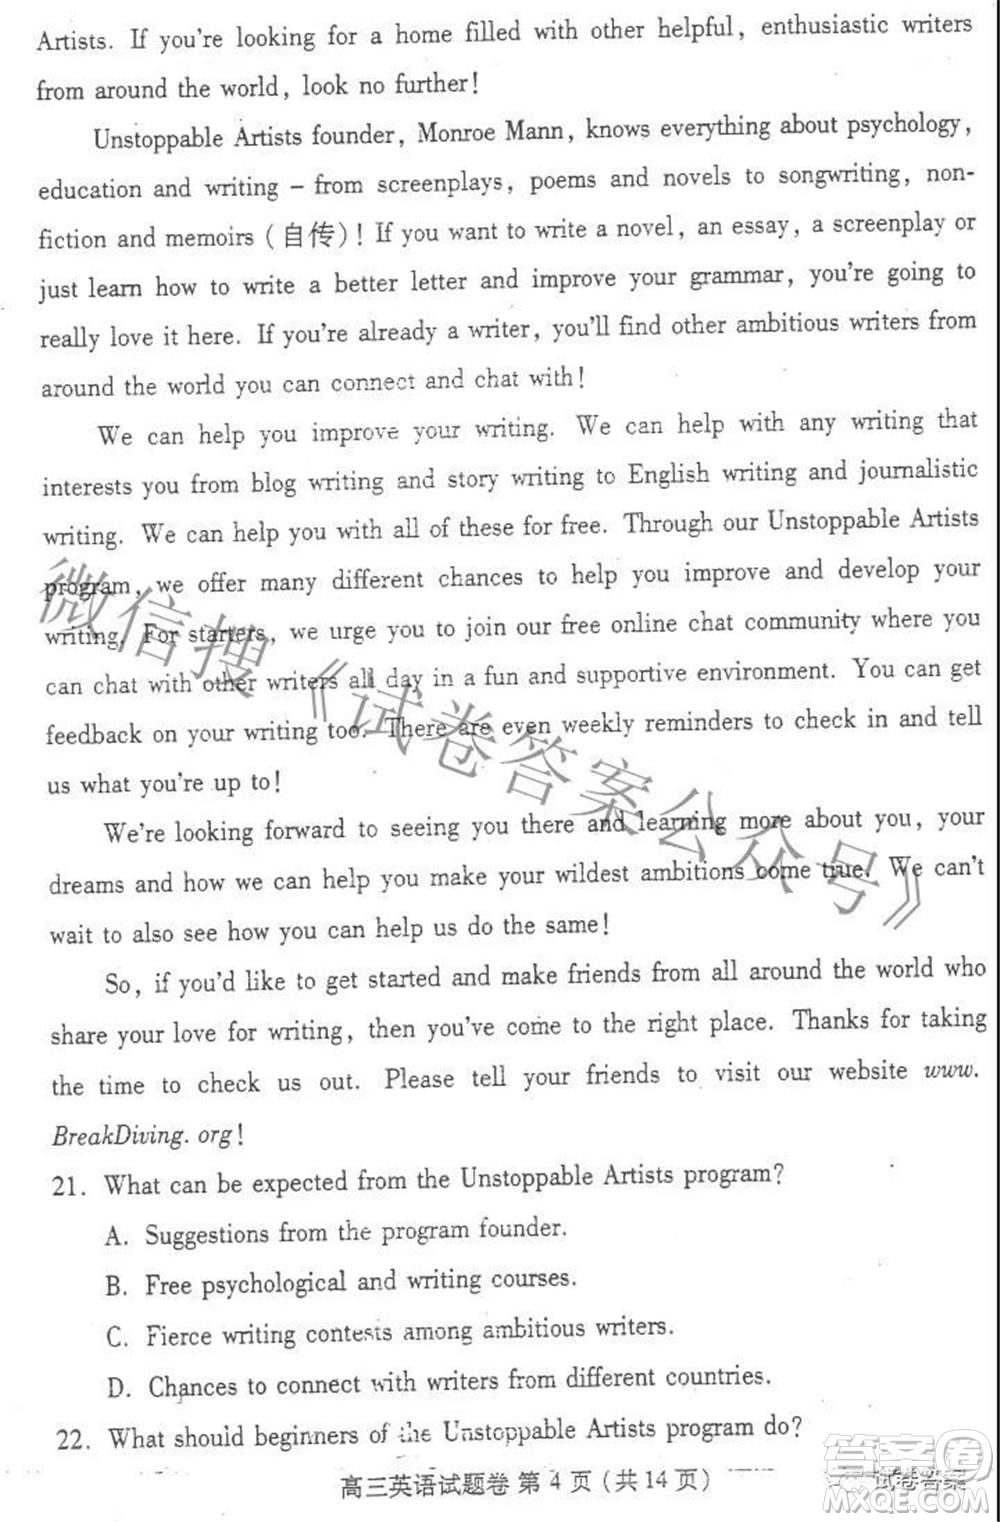 Artists. If you're looking for a home filled with other helpful, enthusiastic writers
from around the world, look no further!
Unstoppable Artists founder, Monroe Mann, knows everything about psychology,
education and writing – from screenplays, poems and novels to songwriting, non-
fiction and memoirs (自传)! If you want to write a novel, an essay, a screenplay or
just learn how to write a better letter and improve your grammar, you're going to
really love it here. If you're already a writer, you'll find other ambitious writers from
around the world you can connect and chat with!
We can help you improve your writing. We can help with any writing that
interests you from blog writing and story writing to English writing and journalistic
writing. We can help you with all of these for free. Through our Unstoppable Artists
program, we offer many different chances to help you improve and develop your
writing. For starters, we urge you to join our free online chat community where you
can chat with other writers all day in a fun and supportive environment. You can get
feedback on your writing too. There are even weekly reminders to check in and tell
us what you're up to!
We're looking forward to seeing you there and learning more about you, your
dreams and how we can help you make your wildest ambitions come true. We can't
wait to also see how you can help us do the same!
So, if you'd like to get started and make friends from all around the world who
share your love for writing, then you've come to the right place. Thanks for taking
the time to check us out. Please tell your friends to visit our website www.
BreakDiving. org!
21. What can be expected from the Unstoppable Artists program?
A. Suggestions from the program founder.
B. Free psychological and writing courses.
C. Fierce writing contests among ambitious writers.
D. Chances to connect with writers from different countries.
22. What should beginners of the Unstoppable Artists program do?
高三英语试题卷 第 4 页(共 14 页)
微信搜《试卷答案公众号》
试卷答案
答案圈
MXQE.COM